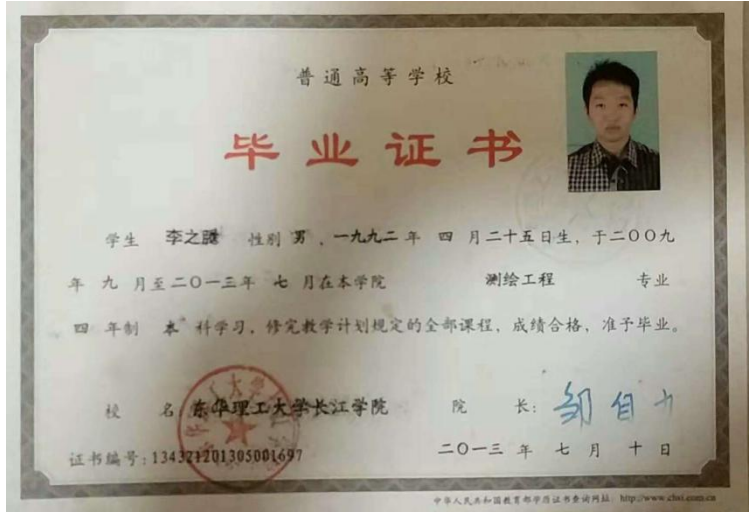 普通高等学校
毕业证书
学生 李之 性别 男，一九九二 年 四 月二十五日生，于二〇〇九
年 九 月至二〇一三年 七 月在本学院 测绘工程 专业
四 年制 本 科学习，修完教学计划规定的全部课程，成绩合格，准予毕业。
校 名：东华理工大学长江学院 院 长：邹自力
证书编号：134321201305001697 二〇一三 年 七 月 十 日
中华人民共和国教育部学历证书查询网址：http://www.chsi.com.cn